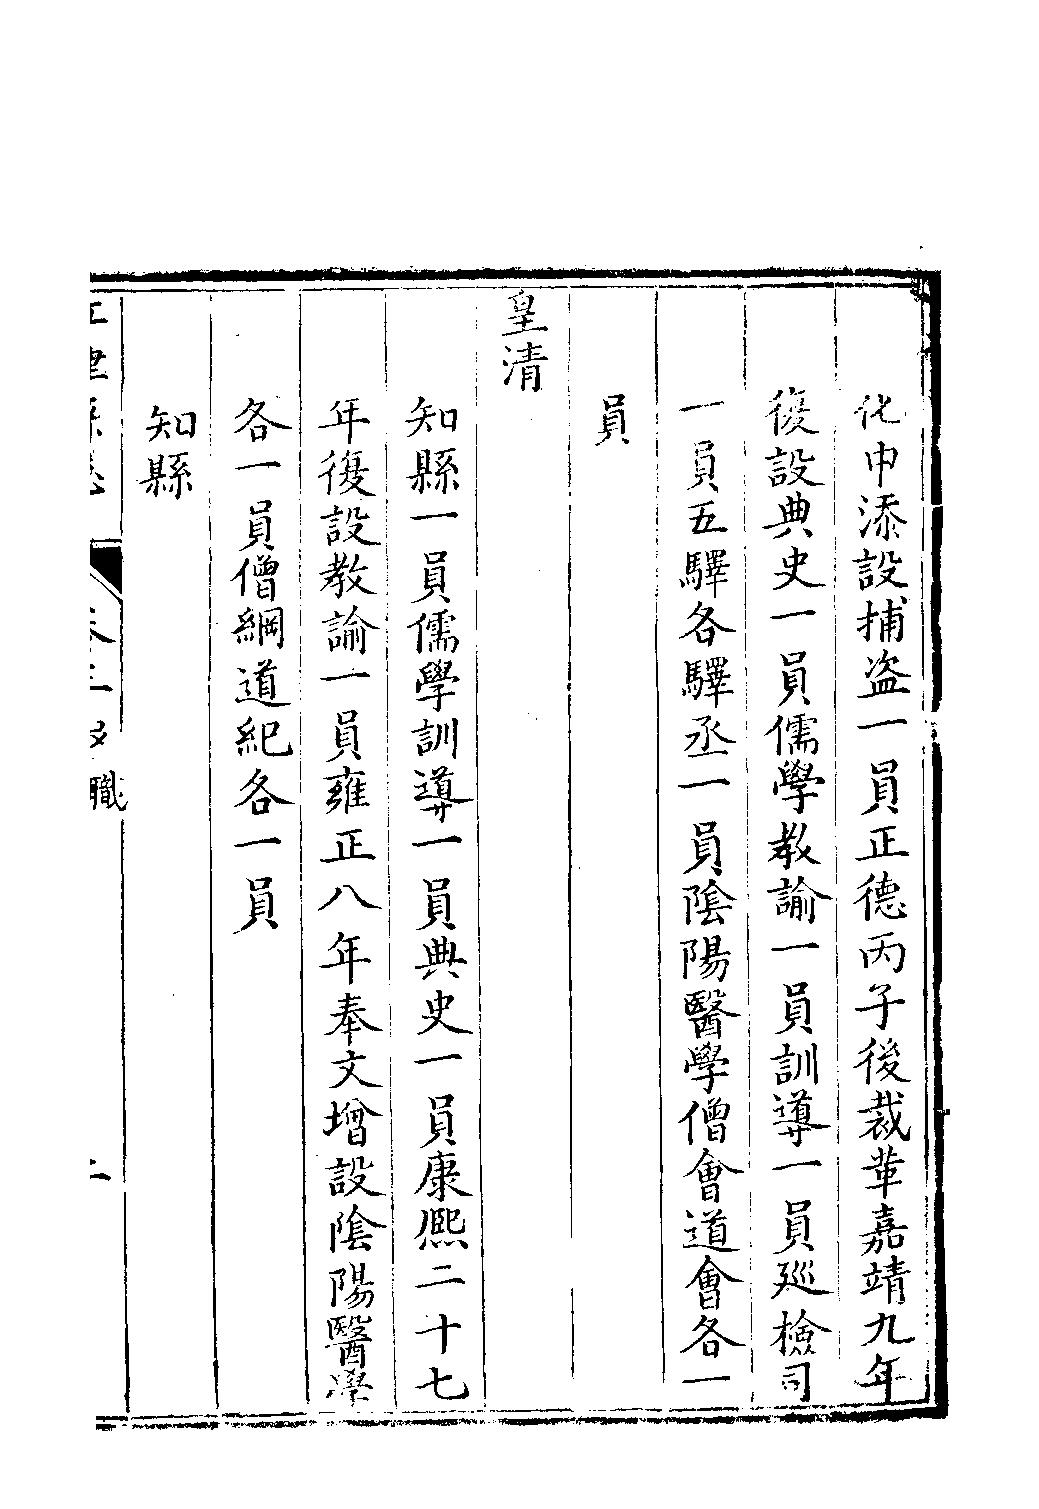 化中添設捕盗一員正德丙子後裁革嘉靖九年
復設典史一員儒學教諭一員訓導一員廵檢司
一員五驛各驛丞一員陰陽醫學僧會道會各一
員
皇清
知縣一員儒學訓導一員典史一員康熙二十七
年復設教諭一員雍正八年奉文增設陰陽醫學
各一員僧綱道紀各一員
知縣
職